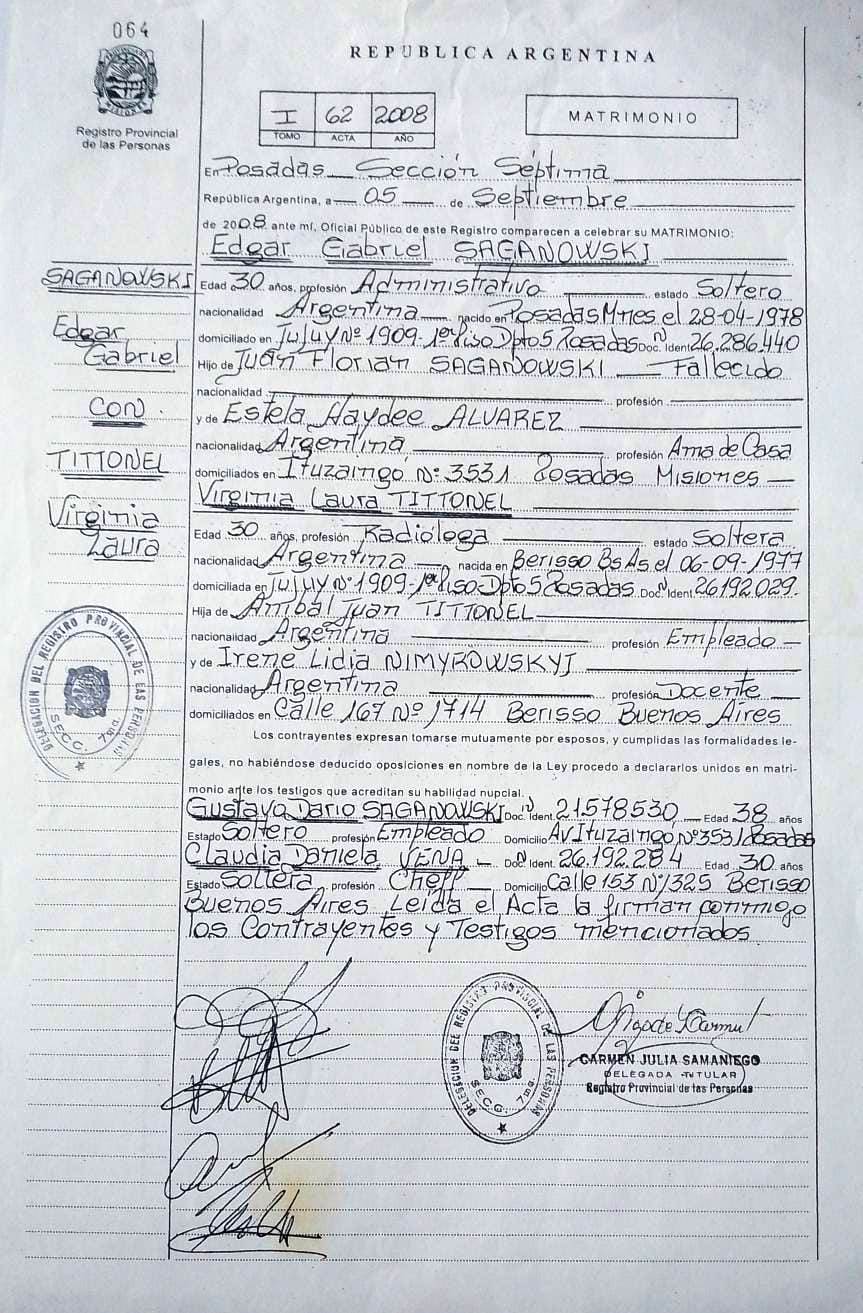 064
REPUBLICA ARGENTINA
MISIONES
Registro Provincial
de las Personas
I 62 2008
TOMO ACTA AÑO
MATRIMONIO
En Posadas Sección Séptima
República Argentina, a 05 de Septiembre
de 2008 ante mí, Oficial Público de este Registro comparecen a celebrar su MATRIMONIO:
Edgar Gabriel SAGANOWSKI
SAGANOWSKI
Edgar
Gabriel
CON
TITTONEL
Virginia
Laura
Edad 30 años, profesión Administrativo estado Soltero
nacionalidad Argentina nacido en Posadas Mnes el 28-04-1978
domiciliado en Jujuy Nº 1909-1º Piso Dpto 5 Posadas Doc. Ident. Nº 26.286.440
Hijo de Juan Florian SAGANOWSKI Fallecido
nacionalidad profesión
y de Estela Haydee ALVAREZ
nacionalidad Argentina profesión Ama de Casa
domiciliados en Ituzaingó Nº 3531 Posadas Misiones
Virginia Laura TITTONEL
Edad 30 años, profesión Radióloga estado Soltera
nacionalidad Argentina nacida en Berisso Bs As. el 06-09-1977
domiciliada en Jujuy Nº 1909-1º Piso Dpto 5 Posadas Doc. Ident. Nº 26.192.029.
Hija de Anibal Juan TITTONEL
nacionalidad Argentina profesión Empleado
y de Irene Lidia NIMYROWSKYJ
nacionalidad Argentina profesión Docente
domiciliados en Calle 167 Nº 1714 Berisso Buenos Aires
Los contrayentes expresan tomarse mutuamente por esposos, y cumplidas las formalidades le-
gales, no habiéndose deducido oposiciones en nombre de la Ley procedo a declararlos unidos en matri-
monio ante los testigos que acreditan su habilidad nupcial.
Gustavo Dario SAGANOWSKI Doc. Ident. Nº 21.578.530 Edad 38 años
Estado Soltero profesión Empleado Domicilio Av Ituzaingo Nº 3531 Posadas
Claudia Daniela VENA Doc. Ident. Nº 26.192.284 Edad 30 años
Estado Soltera profesión Cheff Domicilio Calle 153 Nº 1325 Berisso
Buenos Aires Leída el Acta la firman conmigo
los Contrayentes y Testigos mencionados
DELEGACION DEL REGISTRO PROVINCIAL DE LAS PERSONAS
SECC. 7ma.
DELEGACION DEL REGISTRO PROVINCIAL DE LAS PERSONAS
SECC. 7ma.
CARMEN JULIA SAMANIEGO
DELEGADA TITULAR
Registro Provincial de las Personas